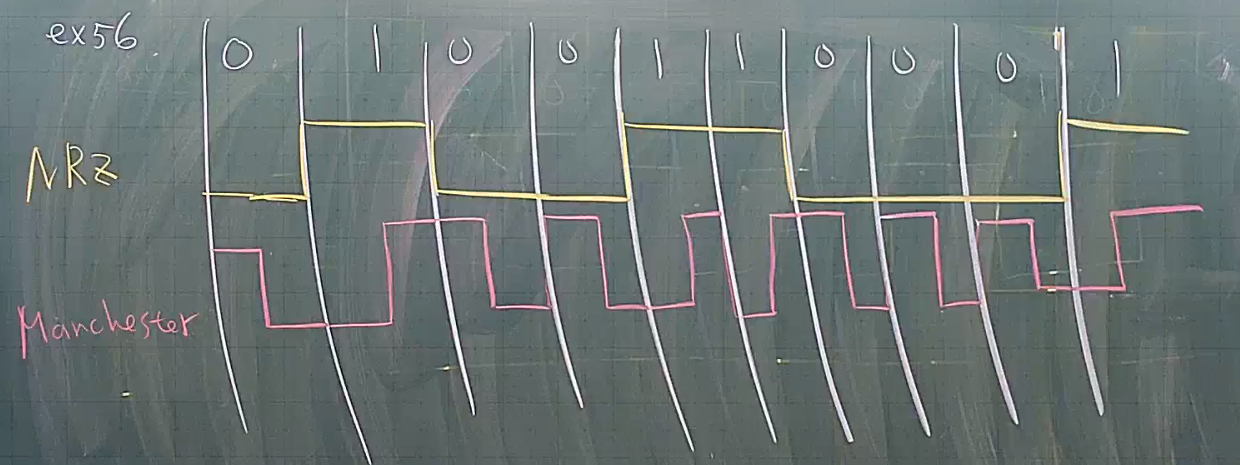 ex56
0 1 0 0 1 1 0 0 0 1
NRZ
Manchester